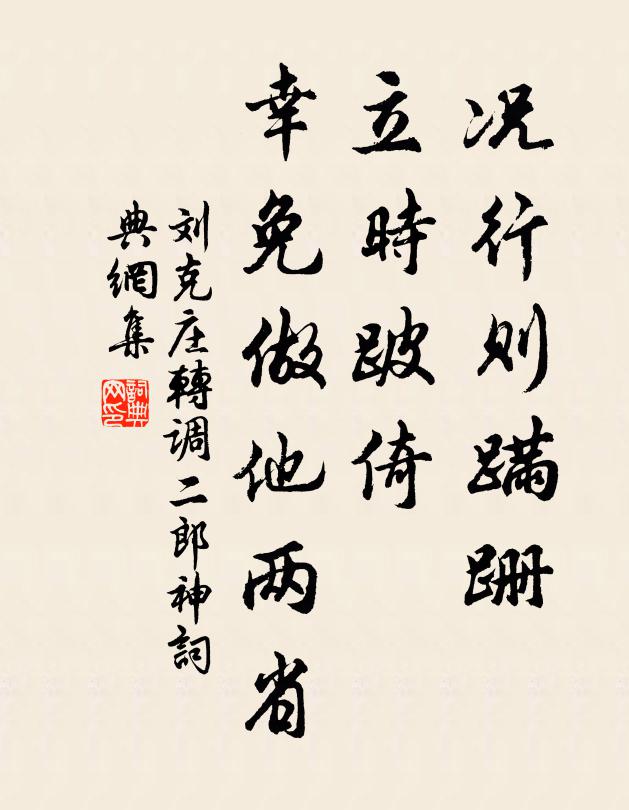 况行则蹒跚
立時跛倚
幸免做他两省
刘克庄轉调二郎神詞
典網集
詞典网印